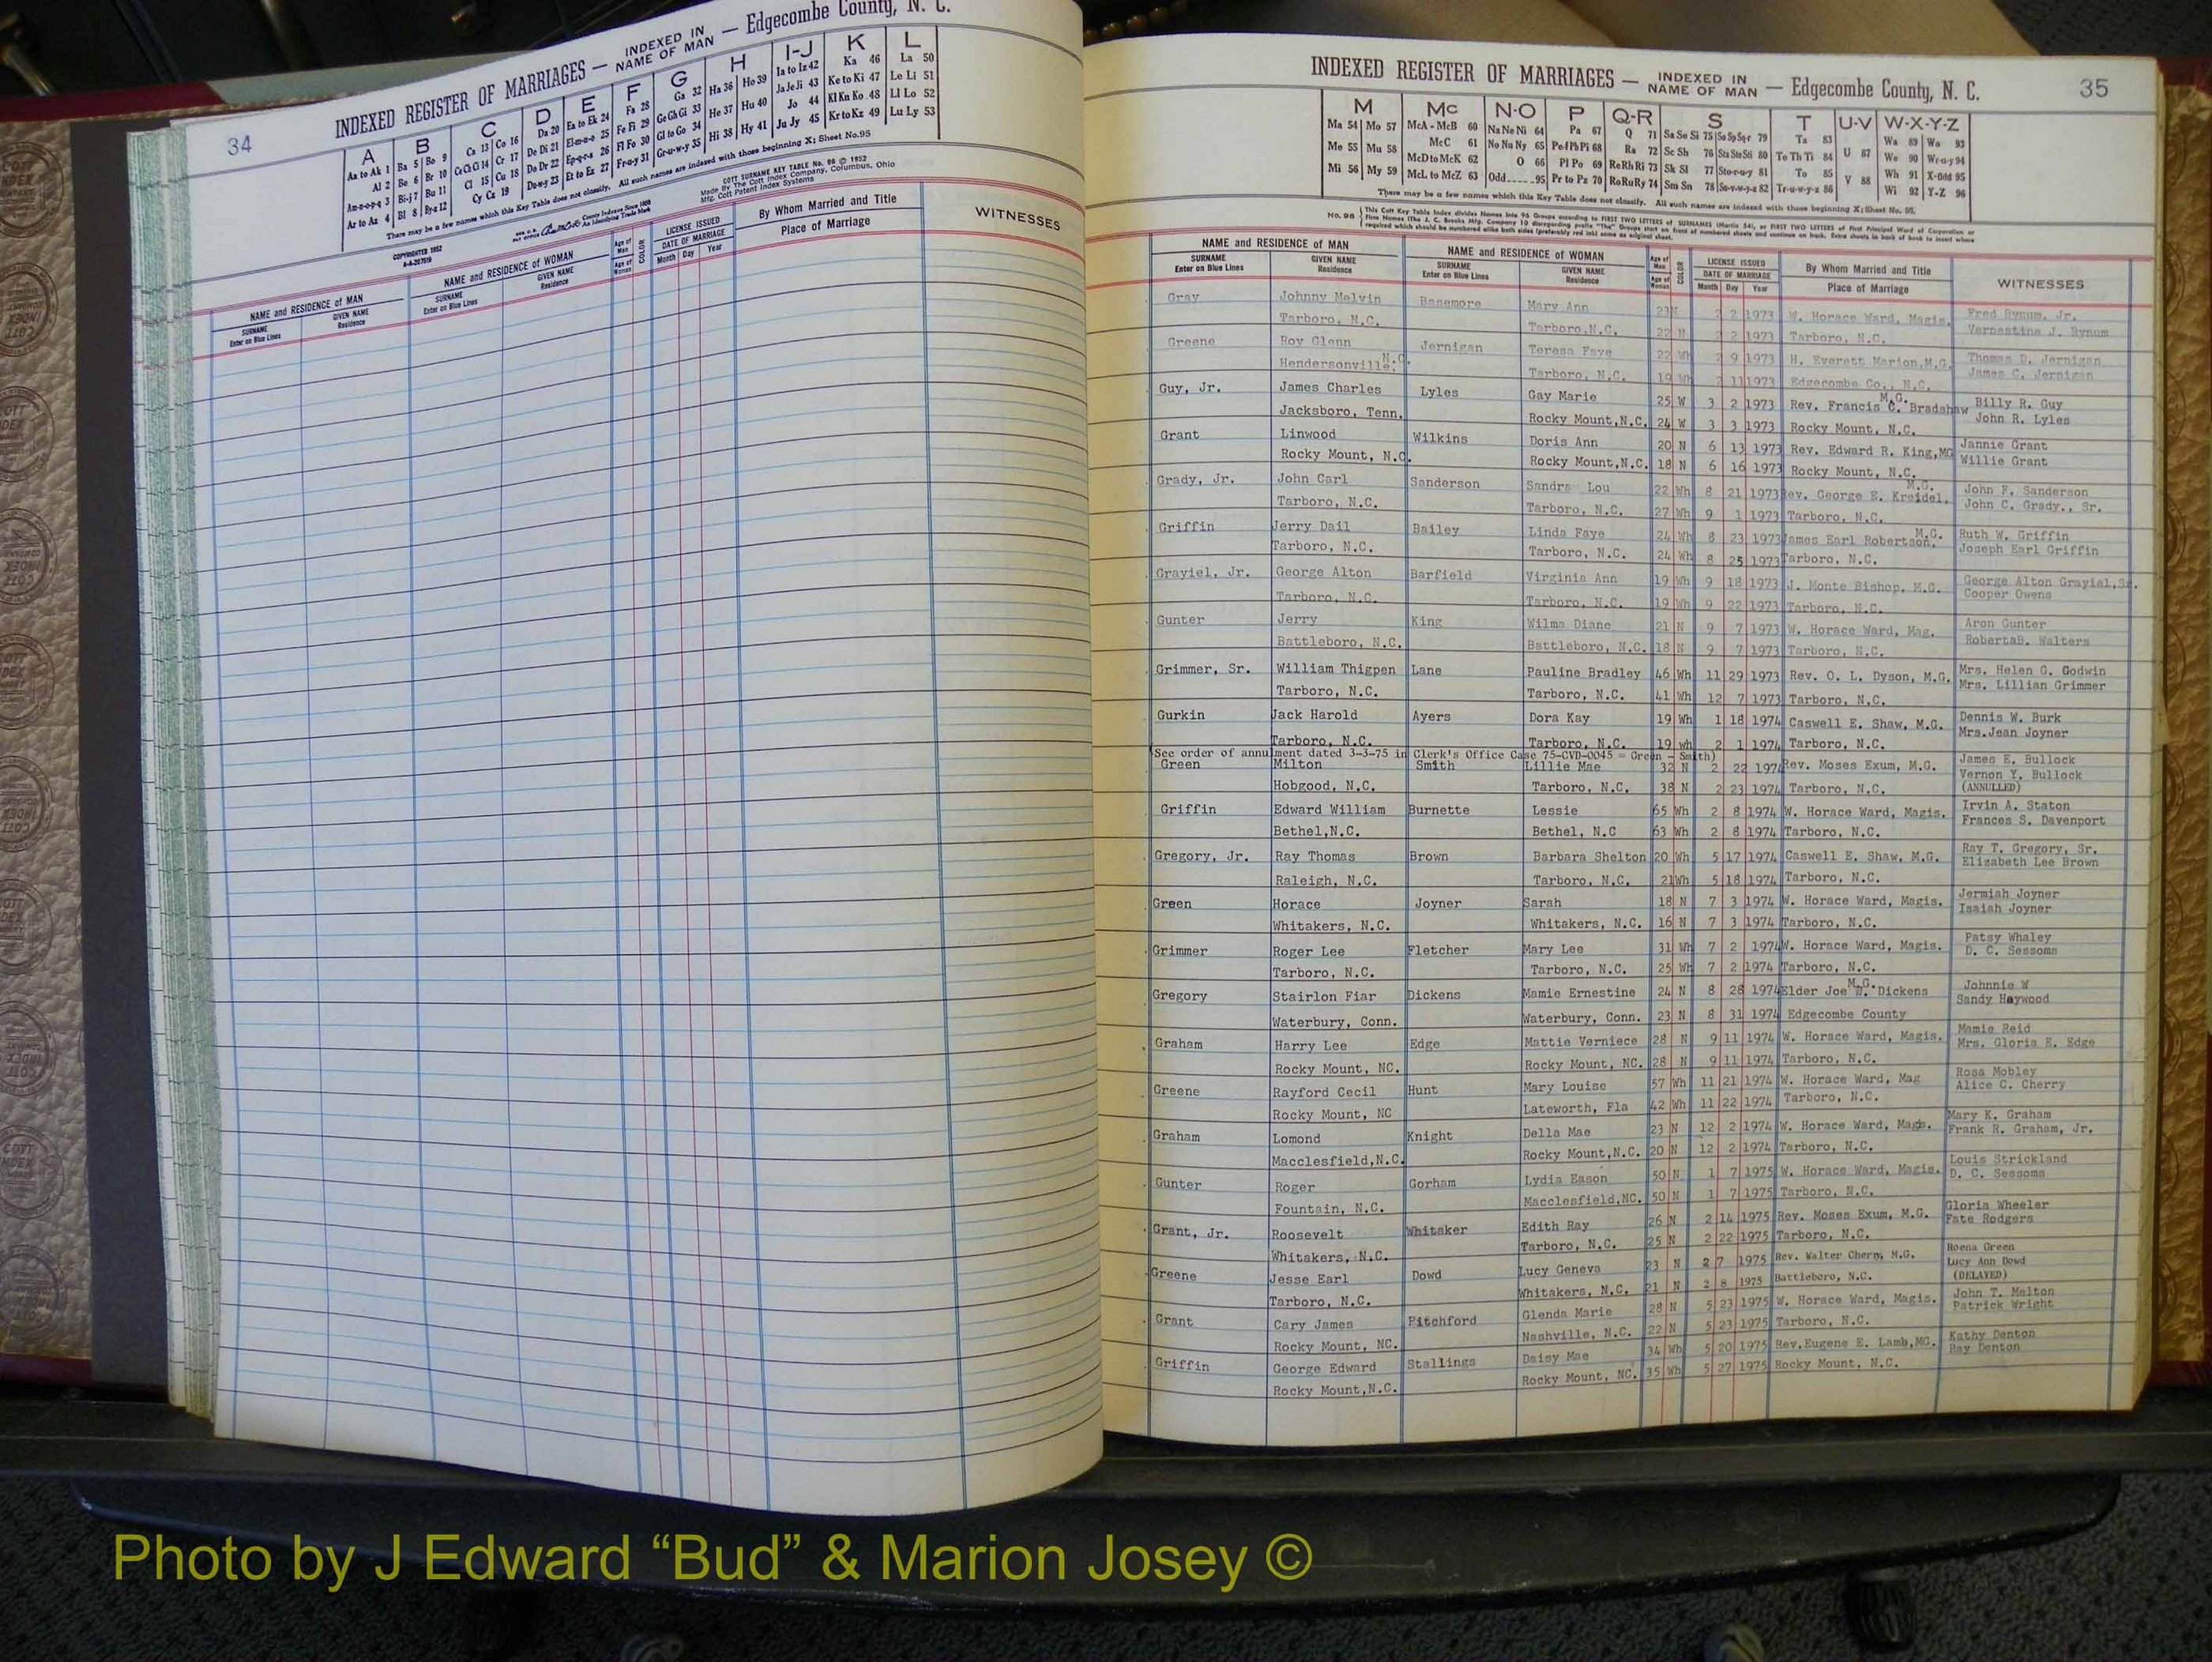 34
INDEXED REGISTER OF MARRIAGES — INDEXED IN NAME OF MAN — Edgecombe County, N. C.
A B C D E F G H I-J K L
Aa to Ak 1 Ba 5 Bo 9 Ca 13 Co 16 Da 20 Ea to Ek 24 Fa 28 Ga 32 Ha 36 Ho 39 Ia to Iz 42 Ka 46 La 50
Al 2 Be 6 Br 10 Ce Ch Ci 14 Cr 17 De Di 21 El-m-n-o 25 Fe Fi 29 Ge Gh Gi 33 He 37 Hu 40 Ja Je Ji 43 Ke to Ki 47 Le Li 51
Am-n-o-p-q 3 Bi-j 7 Bu 11 Cl 15 Cu 18 Do Dr 22 Ep-q-r-s 26 Fl Fo 30 Gl to Go 34 Hi 38 Hy 41 Jo 44 Kl Kn Ko 48 Ll Lo 52
Ar to Az 4 Bl 8 By-z 12 Cy Cz 19 Du-w-y 23 Et to Ez 27 Fr-u-y 31 Gr-u-w-y 35 Ju Jy 45 Kr to Kz 49 Lu Ly 53
There may be a few names which this Key Table does not classify. All such names are indexed with those beginning X; Sheet No. 95
COTT SURNAME KEY TABLE No. 96 © 1952
Made By The Cott Index Company, Columbus, Ohio
Mfg. Cott Patent Index Systems
COPYRIGHTED 1952
NAME and RESIDENCE of MAN NAME and RESIDENCE of WOMAN Age of Man COLOR LICENSE ISSUED By Whom Married and Title WITNESSES
SURNAME GIVEN NAME SURNAME GIVEN NAME Age of Woman DATE OF MARRIAGE Place of Marriage
Enter on Blue Lines Residence Enter on Blue Lines Residence Month Day Year
INDEXED REGISTER OF MARRIAGES — INDEXED IN NAME OF MAN — Edgecombe County, N. C. 35
M Mc N-O P Q-R S T U-V W-X-Y-Z
Ma 54 Mo 57 McA - McB 60 Na Ne Ni 64 Pa 67 Q 71 Sa Se Si 75 So Sp Sq-r 79 Ta 83 Wa 89 Wo 93
Me 55 Mu 58 McC 61 No Nu Ny 65 Pe-f Ph Pi 68 Ra 72 Sc Sh 76 Sta Ste Sti 80 Te Th Ti 84 U 87 We 90 Wr-u-y 94
Mi 56 My 59 McD to McK 62 O 66 Pl Po 69 Re Rh Ri 73 Sk Sl 77 Sto-r-u-y 81 To 85 V 88 Wh 91 X-Odd 95
McL to McZ 63 Odd 95 Pr to Pz 70 Ro Ru Ry 74 Sm Sn 78 Su-v-w-y-z 82 Tr-u-w-y-z 86 Wi 92 Y-Z 96
There may be a few names which this Key Table does not classify. All such names are indexed with those beginning X; Sheet No. 95.
NAME and RESIDENCE OF MAN NAME and RESIDENCE OF WOMAN Age of Man COLOR LICENSE ISSUED By Whom Married and Title WITNESSES
SURNAME GIVEN NAME SURNAME GIVEN NAME Age of Woman DATE OF MARRIAGE Place of Marriage
Enter on Blue Lines Residence Enter on Blue Lines Residence Month Day Year
Gray Johnny Melvin Basemore Mary Ann 23 N 2 2 1973 W. Horace Ward, Magis. Fred Bynum, Jr.
Tarboro, N.C. Tarboro,N.C. 22 N 2 2 1973 Tarboro, N.C. Vernestine J. Bynum
Greene Roy Glenn Jernigan Teresa Faye 22 Wh 2 9 1973 H. Everett Marion,M.G. Thomas D. Jernigan
Hendersonville, N.C. Tarboro, N.C. 19 Wh 2 11 1973 Edgecombe Co., N.C. James C. Jernigan
Guy, Jr. James Charles Lyles Gay Marie 25 W 3 2 1973 Rev. Francis C. Bradshaw M.G. Billy R. Guy
Jacksboro, Tenn. Rocky Mount,N.C. 24 W 3 3 1973 Rocky Mount, N.C. John R. Lyles
Grant Linwood Wilkins Doris Ann 20 N 6 13 1973 Rev. Edward R. King,MG Jannie Grant
Rocky Mount, N.C. Rocky Mount,N.C. 18 N 6 16 1973 Rocky Mount, N.C. Willie Grant
Grady, Jr. John Carl Sanderson Sandra Lou 22 Wh 8 21 1973 Rev. George E. Kreidel, M.G. John F. Sanderson
Tarboro, N.C. Tarboro, N.C. 27 Wh 9 1 1973 Tarboro, N.C. John C. Grady., Sr.
Griffin Jerry Dail Bailey Linda Faye 24 Wh 8 23 1973 James Earl Robertson, M.G. Ruth W. Griffin
Tarboro, N.C. Tarboro, N.C. 24 Wh 8 25 1973 Tarboro, N.C. Joseph Earl Griffin
Grayiel, Jr. George Alton Barfield Virginia Ann 19 Wh 9 18 1973 J. Monte Bishop, M.G. George Alton Grayiel,Sr.
Tarboro, N.C. Tarboro, N.C. 19 Wh 9 22 1973 Tarboro, N.C. Cooper Owens
Gunter Jerry King Wilma Diane 21 N 9 7 1973 W. Horace Ward, Mag. Aron Gunter
Battleboro, N.C. Battleboro, N.C. 18 N 9 7 1973 Tarboro, N.C. RobertaB. Walters
Grimmer, Sr. William Thigpen Lane Pauline Bradley 46 Wh 11 29 1973 Rev. O. L. Dyson, M.G. Mrs. Helen G. Godwin
Tarboro, N.C. Tarboro, N.C. 41 Wh 12 7 1973 Tarboro, N.C. Mrs. Lillian Grimmer
Gurkin Jack Harold Ayers Dora Kay 19 Wh 1 18 1974 Caswell E. Shaw, M.G. Dennis W. Burk
Tarboro, N.C. Tarboro, N.C. 19 wh 2 1 1974 Tarboro, N.C. Mrs.Jean Joyner
(See order of annulment dated 3-3-75 in Clerk's Office Case 75-CVD-0045 = Green - Smith)
Green Milton Smith Lillie Mae 32 N 2 22 1974 Rev. Moses Exum, M.G. James E. Bullock
Vernon Y. Bullock
Hobgood, N.C. Tarboro, N.C. 38 N 2 23 1974 Tarboro, N.C. (ANNULLED)
Griffin Edward William Burnette Lessie 65 Wh 2 8 1974 W. Horace Ward, Magis. Irvin A. Staton
Bethel,N.C. Bethel, N.C 63 Wh 2 8 1974 Tarboro, N.C. Frances S. Davenport
Gregory, Jr. Ray Thomas Brown Barbara Shelton 20 Wh 5 17 1974 Caswell E. Shaw, M.G. Ray T. Gregory, Sr.
Raleigh, N.C. Tarboro, N.C. 21 Wh 5 18 1974 Tarboro, N.C. Elizabeth Lee Brown
Green Horace Joyner Sarah 18 N 7 3 1974 W. Horace Ward, Magis. Jermiah Joyner
Whitakers, N.C. Whitakers, N.C. 16 N 7 3 1974 Tarboro, N.C. Isaiah Joyner
Grimmer Roger Lee Fletcher Mary Lee 31 Wh 7 2 1974 W. Horace Ward, Magis. Patsy Whaley
Tarboro, N.C. Tarboro, N.C. 25 Wh 7 2 1974 Tarboro, N.C. D. C. Sessoms
Gregory Stairlon Fiar Dickens Mamie Ernestine 24 N 8 28 1974 Elder Joe D. Dickens M.G. Johnnie W
Waterbury, Conn. Waterbury, Conn. 23 N 8 31 1974 Edgecombe County Sandy Haywood
Graham Harry Lee Edge Mattie Verniece 28 N 9 11 1974 W. Horace Ward, Magis. Mamie Reid
Rocky Mount, NC. Rocky Mount, NC. 28 N 9 11 1974 Tarboro, N.C. Mrs. Gloria E. Edge
Greene Rayford Cecil Hunt Mary Louise 57 Wh 11 21 1974 W. Horace Ward, Mag Rosa Mobley
Rocky Mount, NC Lateworth, Fla 42 Wh 11 22 1974 Tarboro, N.C. Alice C. Cherry
Graham Lomond Knight Della Mae 23 N 12 2 1974 W. Horace Ward, Magis. Mary K. Graham
Macclesfield,N.C. Rocky Mount,N.C. 20 N 12 2 1974 Tarboro, N.C. Frank R. Graham, Jr.
Gunter Roger Gorham Lydia Eason 50 N 1 7 1975 W. Horace Ward, Magis. Louis Strickland
Fountain, N.C. Macclesfield,NC. 50 N 1 7 1975 Tarboro, N.C. D. C. Sessoms
Grant, Jr. Roosevelt Whitaker Edith Ray 26 N 2 14 1975 Rev. Moses Exum, M.G. Gloria Wheeler
Whitakers, N.C. Tarboro, N.C. 25 N 2 22 1975 Tarboro, N.C. Fate Rodgers
Greene Jesse Earl Dowd Lucy Geneva 23 N 2 7 1975 Rev. Walter Cherm, M.G. Roena Green
Lucy Ann Dowd
Tarboro, N.C. Whitakers, N.C. 21 N 2 8 1975 Battleboro, N.C. (DELAYED)
Grant Cary James Pitchford Glenda Marie 28 N 5 23 1975 W. Horace Ward, Magis. John T. Melton
Rocky Mount, NC. Nashville, N.C. 22 N 5 23 1975 Tarboro, N.C. Patrick Wright
Griffin George Edward Stallings Daisy Mae 34 Wh 5 20 1975 Rev.Eugene E. Lamb,MG. Kathy Denton
Rocky Mount,N.C. Rocky Mount, NC. 35 Wh 5 27 1975 Rocky Mount, N.C. Ray Denton
Photo by J Edward “Bud” & Marion Josey ©